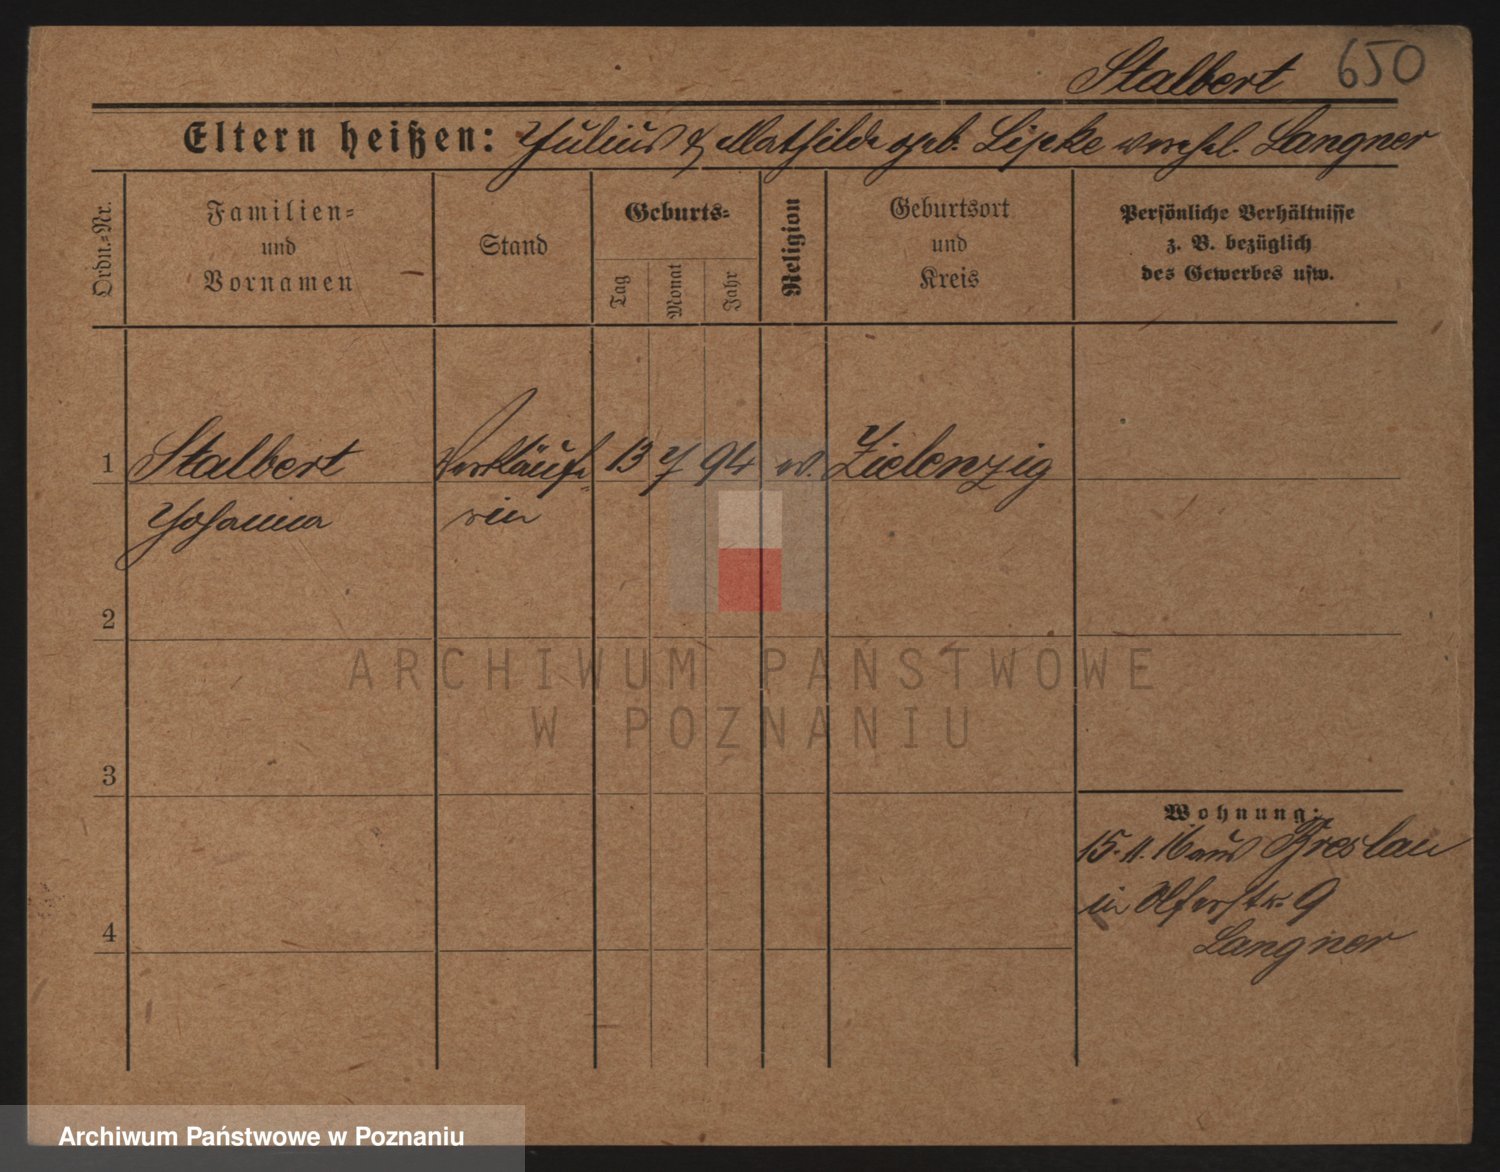 Stalbert 650
Eltern heißen: Julius & Mathilde geb. Lipke verehl. Langner
Ordn.-Nr.
Familien-
und
Vornamen
Stand
Geburts-
Tag
Monat
Jahr
Religion
Geburtsort
und
Kreis
Persönliche Verhältnisse
z. B. bezüglich
des Gewerbes usw.
1 Stalbert Verkäufe- 13 7 94 ev. Zielenzig
Johanna rin
2
3
4
Wohnung:
15.11.16 aus Breslau
in 9
Langner
ARCHIWUM PAŃSTWOWE
W POZNANIU
Archiwum Państwowe w Poznaniu